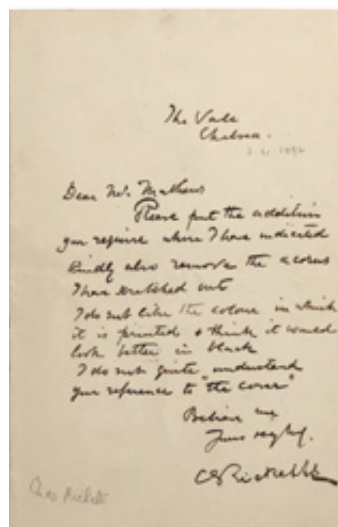 The Vale
Chelsea.
Dear Mr. Mathews
Please put the addition
you require where I have indicated
Kindly also remove the acorns
I have scratched out
I do not like the colour in which
it is printed & think it would
look better in black
I do not quite understand
your reference to "the cover"
Believe me
Yours
C S Ricketts
Chas Ricketts